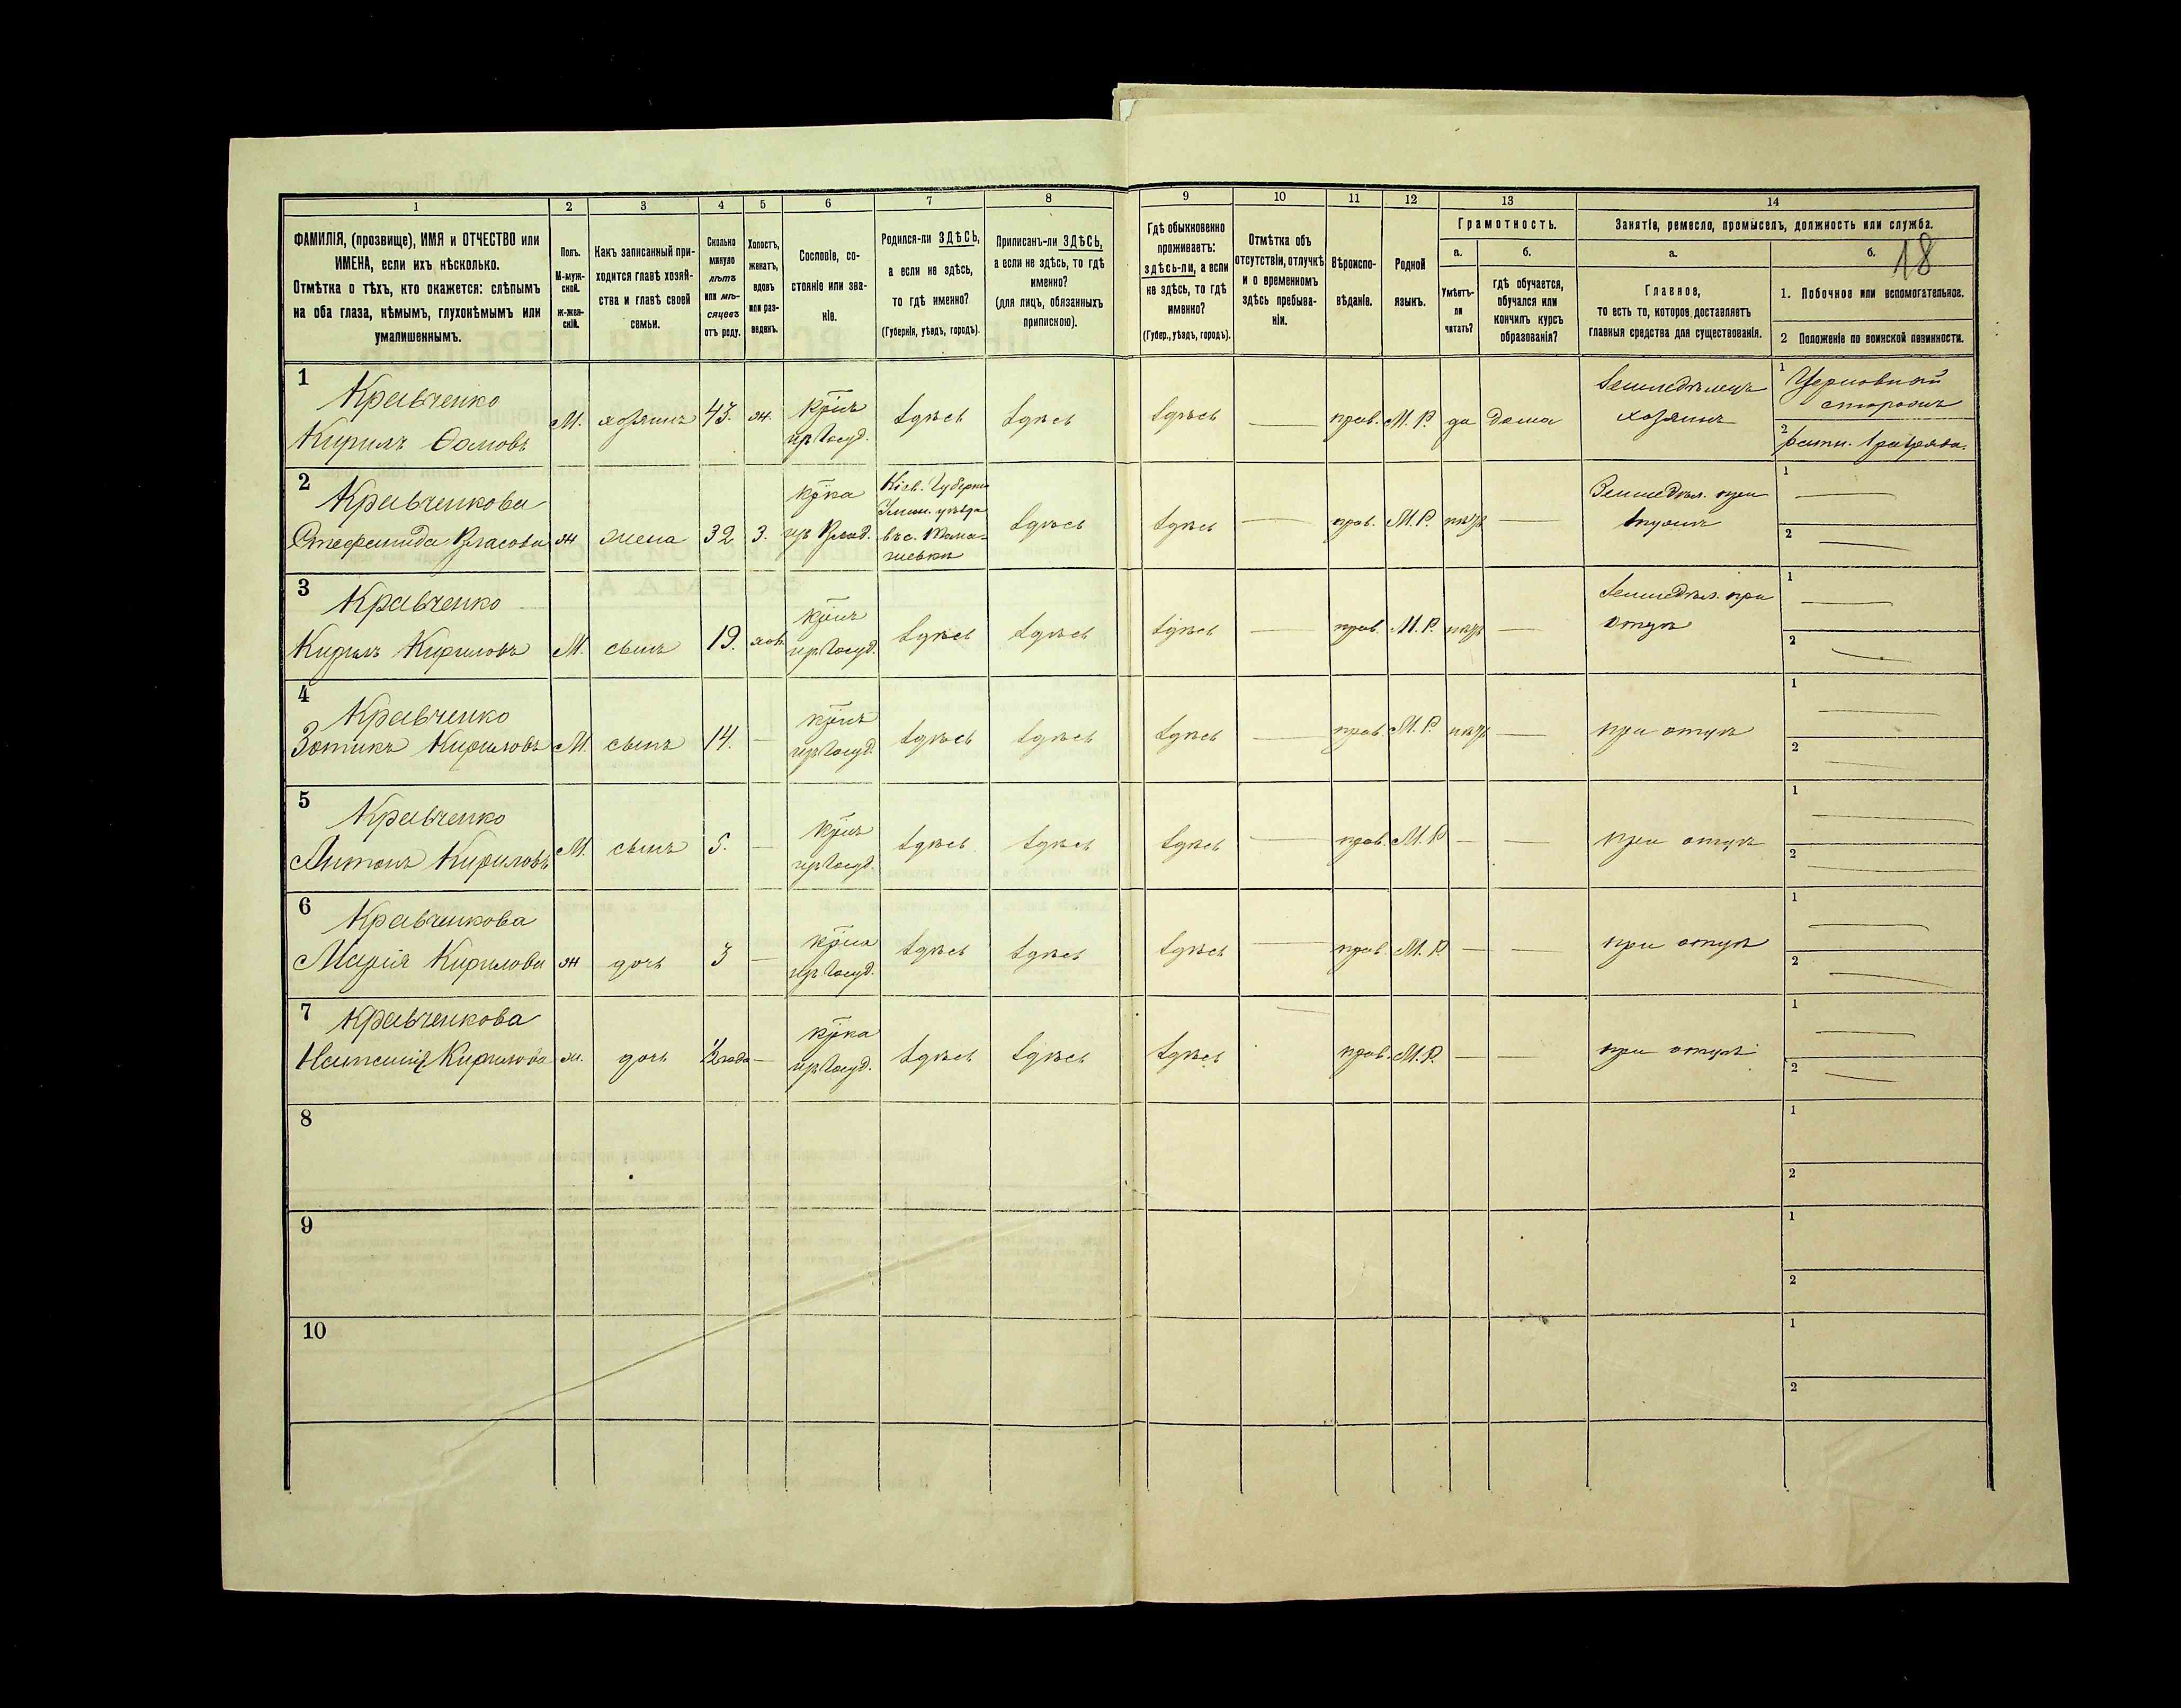 1 2 3 4 5 6 7 8 9 10 11 12 13 14
ФАМИЛІЯ, (прозвище), ИМЯ и ОТЧЕСТВО или
ИМЕНА, если ихъ нѣсколько.
Отмѣтка о тѣхъ, кто окажется: слѣпымъ
на оба глаза, нѣмымъ, глухонѣмымъ или
умалишеннымъ.
Полъ.
М-муж-
ской.
ж-жен-
скій.
Какъ записанный при-
ходится главѣ хозяй-
ства и главѣ своей
семьи.
Сколько
минуло
лѣтъ
или мѣ-
сяцевъ
отъ роду.
Холостъ,
женатъ,
вдовъ
или раз-
веденъ.
Сословіе, со-
стояніе или зва-
ніе.
Родился-ли ЗДѢСЬ,
а если не здѣсь,
то гдѣ именно?
(Губернія, уѣздъ, городъ).
Приписанъ-ли ЗДѢСЬ,
а если не здѣсь, то гдѣ
именно?
(для лицъ, обязанныхъ
припискою).
Гдѣ обыкновенно
проживаетъ:
здѣсь-ли, а если
не здѣсь, то гдѣ
именно?
(Губер., уѣздъ, городъ).
Отмѣтка объ
отсутствіи, отлучкѣ
и о временномъ
здѣсь пребыва-
ніи.
Вѣроиспо-
вѣданіе.
Родной
языкъ.
Грамотность.
а.
Умѣетъ-
ли
читать?
б.
гдѣ обучается,
обучался или
кончилъ курсъ
образованія?
Занятіе, ремесло, промыселъ, должность или служба.
а.
Главное,
то есть то, которое доставляетъ
главныя средства для существованія.
б.
18
1. Побочное или вспомогательное.
2 Положеніе по воинской повинности.
1
Кравченко
Кирилъ Ѳомовъ
М. хозяинъ 43. ж. кр͞інъ
изъ Госуд.
здѣсь здѣсь здѣсь — прав. М. Р. да дома
Земледѣлецъ
хозяинъ
1 Церковный
сторожъ
2 ратн. 1 разряда.
2
Кравченкова
Стефанида Власова
ж жена 32 З. кр͞ка
изъ Влад.
Кіев. Губерніи
уѣзда
здѣсь здѣсь — прав. М. Р. нѣтъ —
Земледѣл. при
мужѣ
1 —
2 —
3
Кравченко
Кирилъ Кириловъ
М. сынъ 19. хол. кр͞інъ
изъ Госуд.
здѣсь здѣсь здѣсь — прав. М. Р. нѣтъ —
Земледѣл. при
отцѣ
1 —
2 —
4
Кравченко
Зотикъ Кириловъ
М. сынъ 14. — кр͞інъ
изъ Госуд.
здѣсь здѣсь здѣсь — прав. М. Р. нѣтъ — при отцѣ
1 —
2 —
5
Кравченко
Антонъ Кириловъ
М. сынъ 5. — кр͞інъ
изъ Госуд.
здѣсь здѣсь здѣсь — прав. М. Р — — при отцѣ
1 —
2 —
6
Кравченкова
Марія Кирилова
ж дочь 3 — кр͞ка
изъ Госуд.
здѣсь здѣсь здѣсь — прав. М. Р. — — при отцѣ
1 —
2 —
7
Кравченкова
Наталія Кирилова
ж. дочь 1/2 года — кр͞ка
изъ Госуд.
здѣсь здѣсь здѣсь — прав. М. Р. — — при отцѣ
1 —
2 —
8
1
2
9
1
2
10
1
2